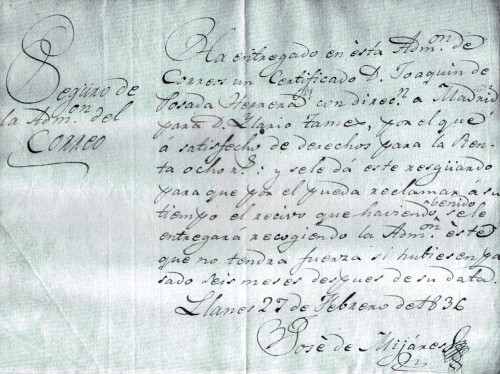 Seguro de
la Adm.on del
Correo
Ha entregado en ésta Adm.on de
Correos un Certificado D. Joaquin de
Posada Herrera con direc.n a Madrid
para D. Ylario Tamez, por el que
a satisfecho de derechos para la Ren-
ta ocho r.s: y se le dá este resguardo
para que por el pueda reclamar a su
tiempo el recivo que haviendo benido se le
entregará recogiendo la Adm.on éste
que no tendra fuerza si hubiesen pa-
sado seis meses despues de su data.
Llanes 27 de Febrero de 1836
José de Mijáres